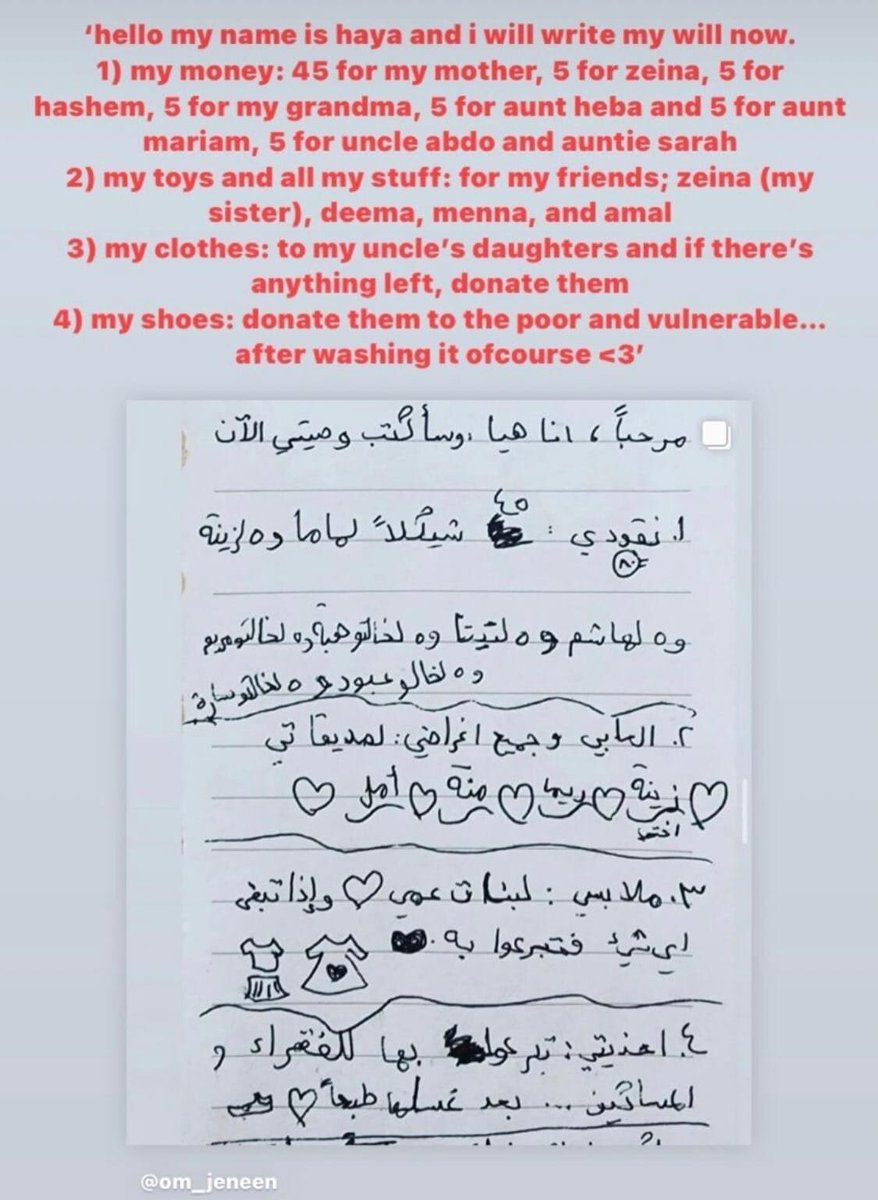 ‘hello my name is haya and i will write my will now.
1) my money: 45 for my mother, 5 for zeina, 5 for
hashem, 5 for my grandma, 5 for aunt heba and 5 for aunt
mariam, 5 for uncle abdo and auntie sarah
2) my toys and all my stuff: for my friends; zeina (my
sister), deema, menna, and amal
3) my clothes: to my uncle’s daughters and if there’s
anything left, donate them
4) my shoes: donate them to the poor and vulnerable...
after washing it ofcourse <3’
مرحباً، انا هيا، وسأكتب وصيتي الآن
٤٥
١. نقودي : شيكلاً لماما و٥ لزينة
٨٠
و٥ لهاشم و٥ لتيتا و٥ لخالتو هبة و٥ لخالتو مريم
و٥ لخالو عبود و٥ لخالتو سارة
٢. العابي و جميع اغراضي: لصديقاتي
زينة ريما منة أمل
اختي
٣. ملابسي : لبنات عمي وإذا تبقى
اي شيء فتبرعوا به.
٤. احذيتي: تبرعوا بها للفقراء و
المساكين ... بعد غسلها طبعاً
@om_jeneen